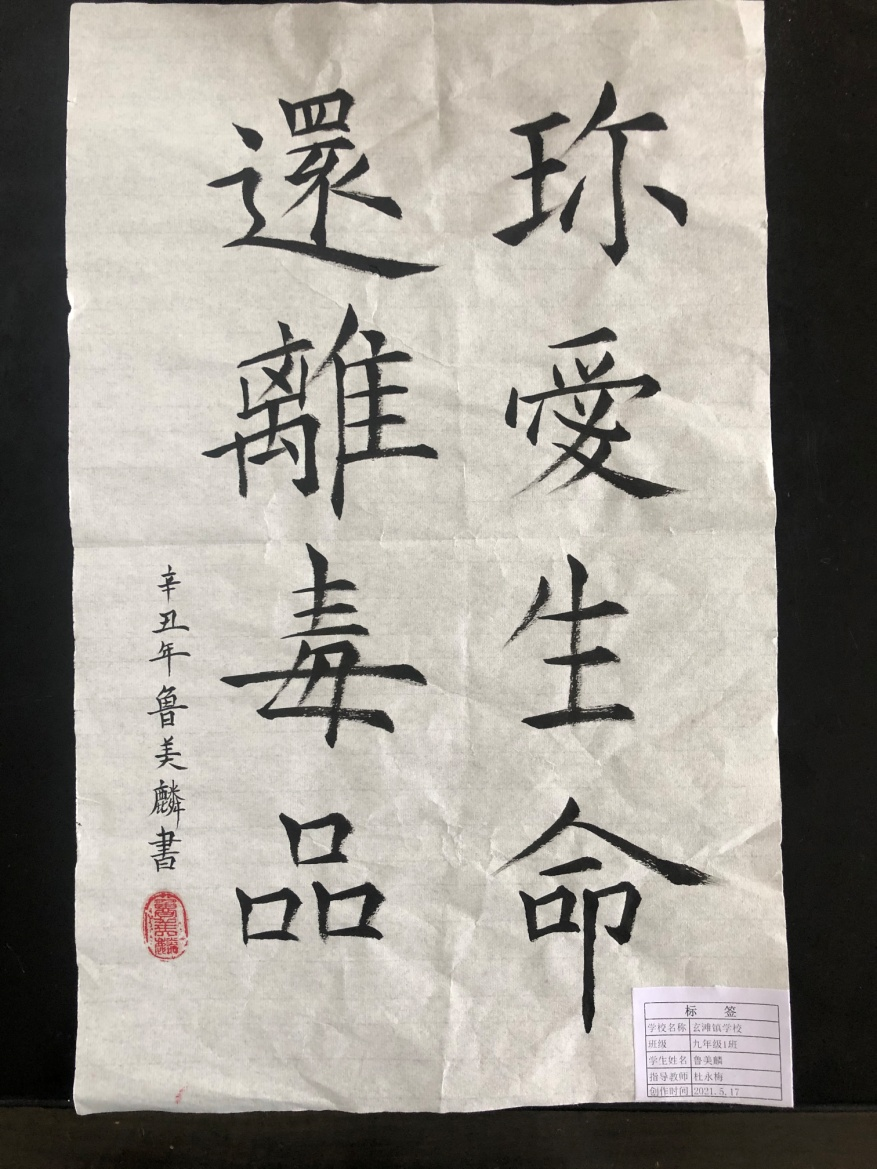 珎愛生命
還離毒品
辛丑年魯美麟書
标 签
学校名称 玄滩镇学校
班级 九年级1班
学生姓名 鲁美麟
指导教师 杜永梅
创作时间 2021.5.17